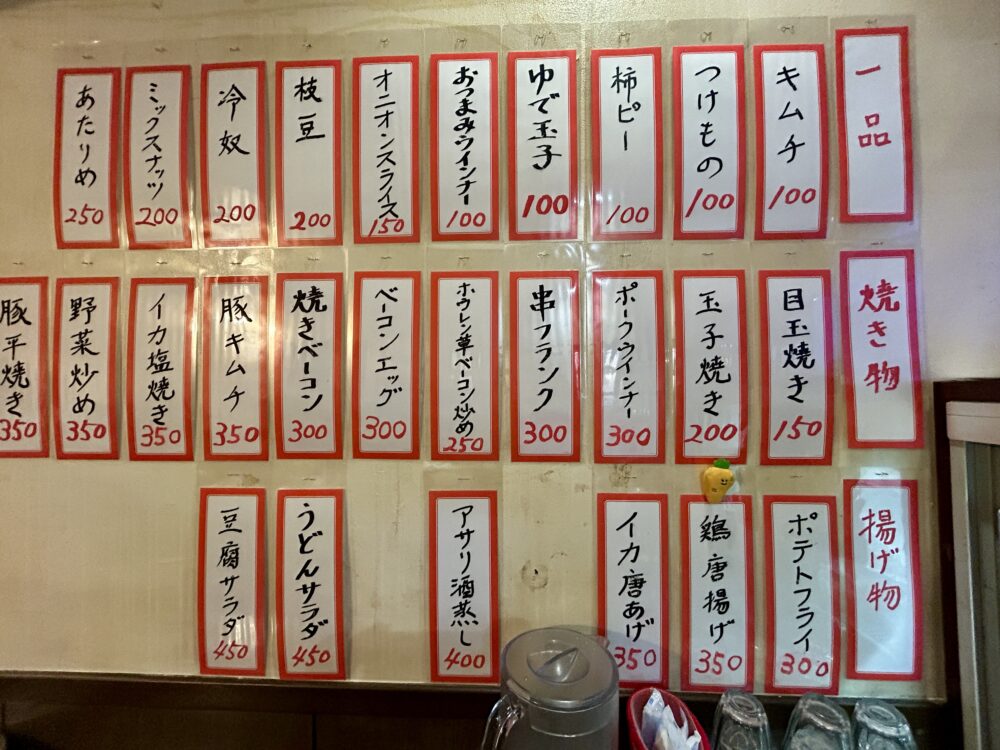 一品
キムチ
100
つけもの
100
柿ピー
100
ゆで玉子
100
おつまみウインナー
100
オニオンスライス
150
枝豆
200
冷奴
200
ミックスナッツ
200
あたりめ
250
焼き物
目玉焼き
150
玉子焼き
200
ポークウインナー
300
串フランク
300
ホウレン草ベーコン炒め
250
ベーコンエッグ
300
焼きベーコン
300
豚キムチ
350
イカ塩焼き
350
野菜炒め
350
豚平焼き
350
揚げ物
ポテトフライ
300
鶏唐揚げ
350
イカ唐あげ
350
アサリ酒蒸し
400
うどんサラダ
450
豆腐サラダ
450